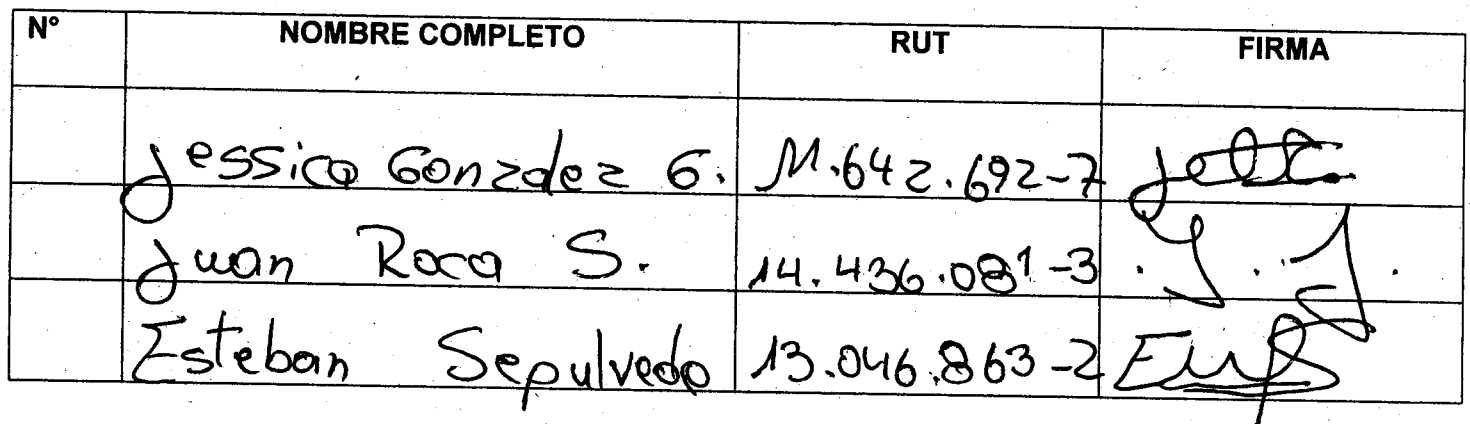 N° NOMBRE COMPLETO RUT FIRMA
Jessica Gonzalez G. 11.642.692-7
Juan Roca S. 14.436.081-3
Esteban Sepulveda 13.046.863-2